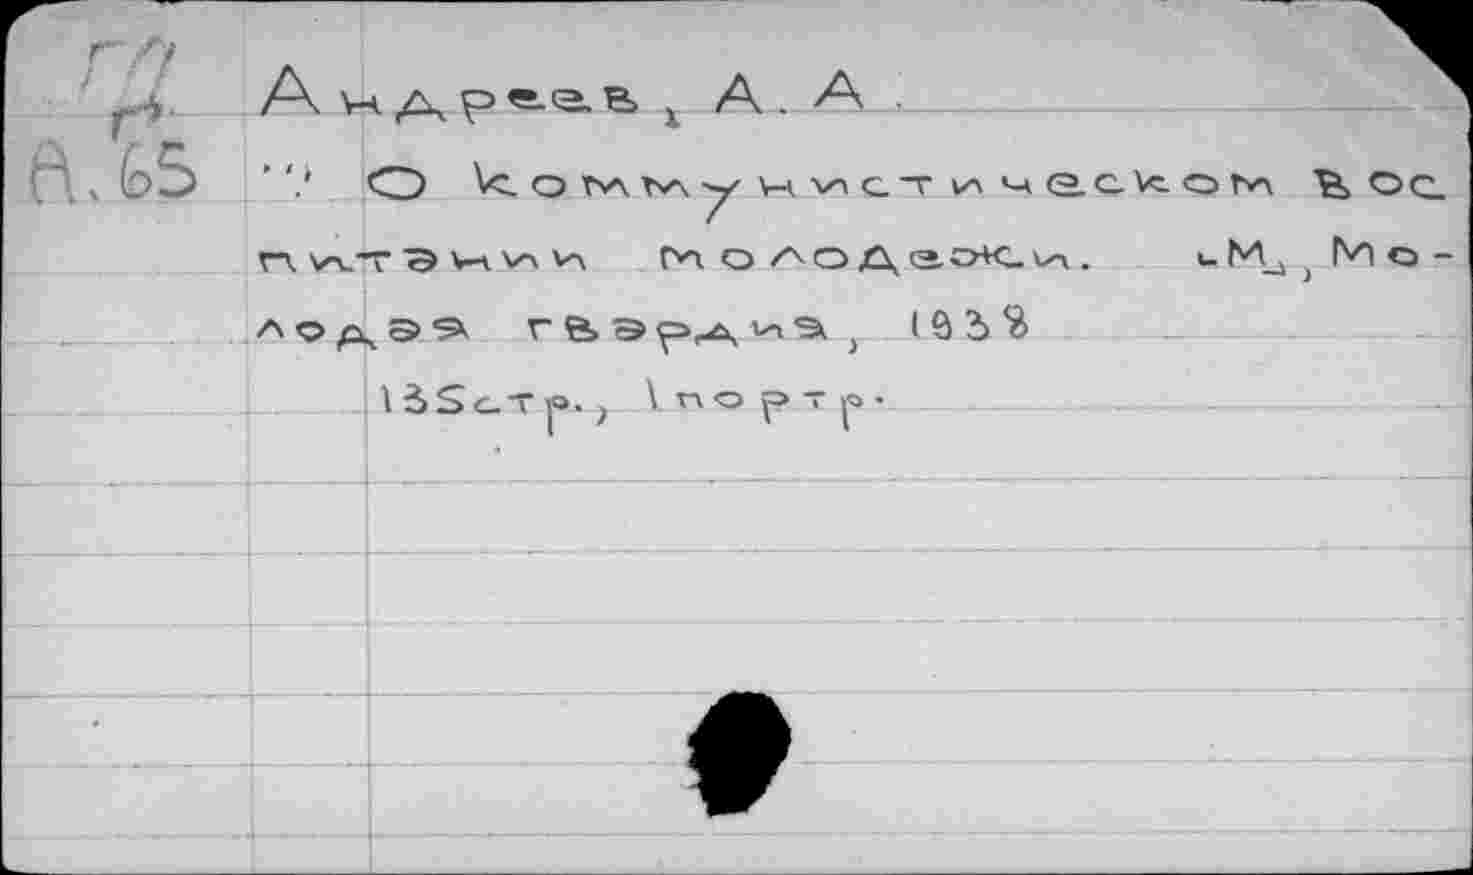 Андреев, А. А.
А. 65
О коммунистическом вос
питании молодежи. М., Мо-
лодая гвардия, 1938
135 стр., 1 портр.